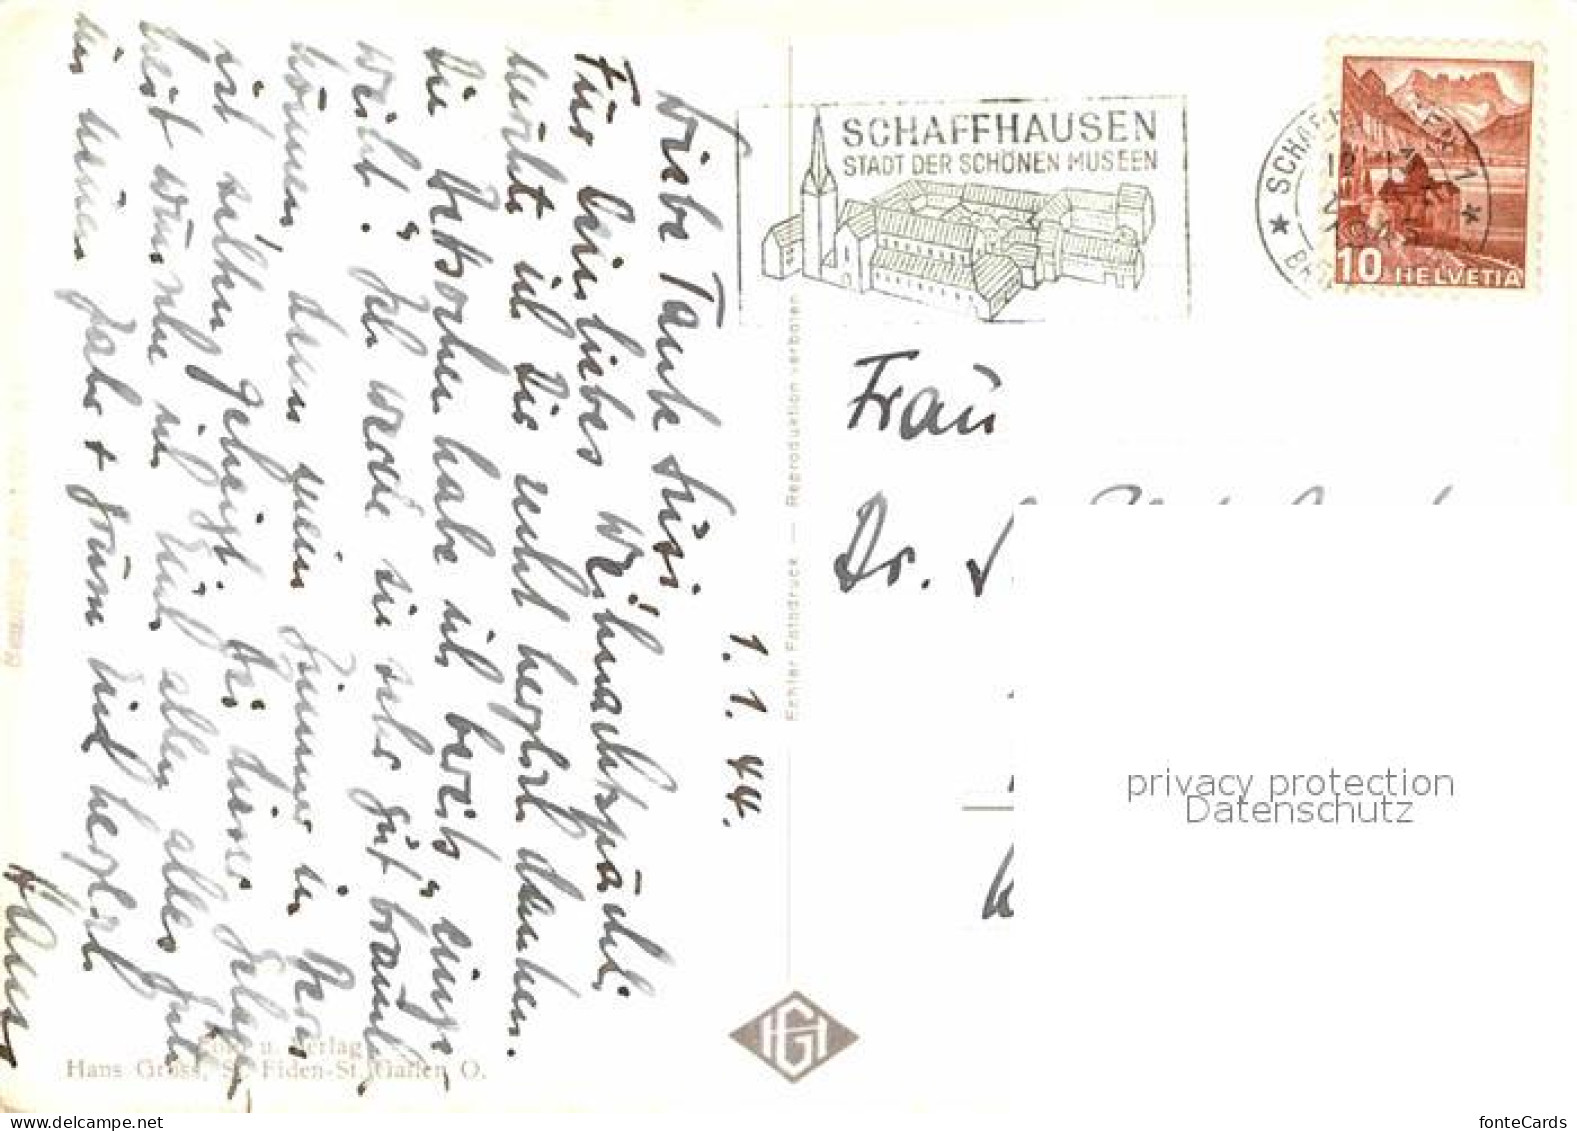 1. 1. 44.
Liebe Tante Susi!
Für Dein liebes Weihnachtspäckli
möchte ich Dir recht herzlich danken.
Die Hetsocken habe ich bereits „einge-
weiht". Ich werde sie sehr gut brauchen
können, denn mein Zimmer in Bern
ist selten geheizt. Bei dieser Gelegen-
heit wünsche ich Euch allen alles Gute
im neuen Jahr + grüsse Euch herzlich
Hans
SCHAFFHAUSEN
STADT DER SCHÖNEN MUSEEN
SCHAFFHAUSEN 1
10 HELVETIA
Frau
Dr.
Fehler Fotodruck — Reproduktion verboten
Foto u. Verlag
Hans Gross, St. Fiden-St. Gallen O.
HG
privacy protection
Datenschutz
www.delcampe.net
fonteCards